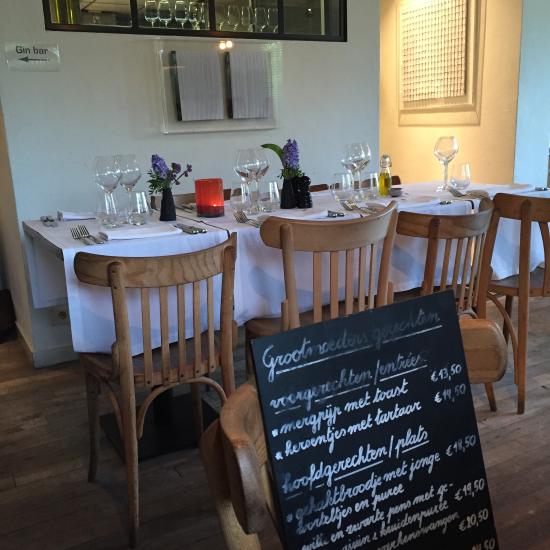 Gin bar
Grootmoeders gerechten
voorgerechten/entrées
* mergpijp met toast €13,50
* hersentjes met tartaar €14,50
hoofdgerechten/plats
* gehaktbroodje met jonge €18,50
worteltjes en puree
* witte en zwarte pens met ge- €19,50
€10,50